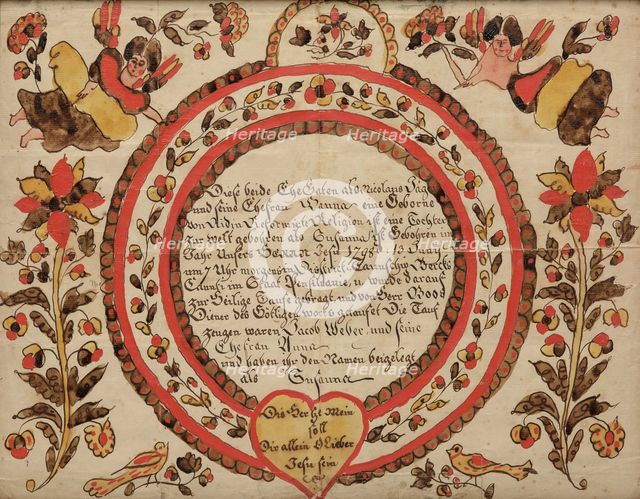 Diese beide Ehe Gaten als Nicolaus Jag
und seine Ehefrau Hanna eine Geborne
von Reformirte Religion ist eine Tochter
zur welt gebohren als Susanna ist Gebohren im
Jahr Unsers Herren Jesu 1798 d 13 Juny
um 7 Uhr morgens in Bercks
Caunti im Staat Penselvanie, u: wurde darauf
zur Heilige Taufe gebragt und von Herr Boos
Diener des Götligen worts getaufet Die Tauf
zeugen waren Jacob Weber und seine
Ehefrau Anna
und haben ihr den Namen beigelegt
als Susanna
Dis Hertze Mein
soll
Dir allein O Lieber
Jesu sein
Heritage
Heritage
Heritage
Heritage
Heritage
Heritage
Heritage
Heritage